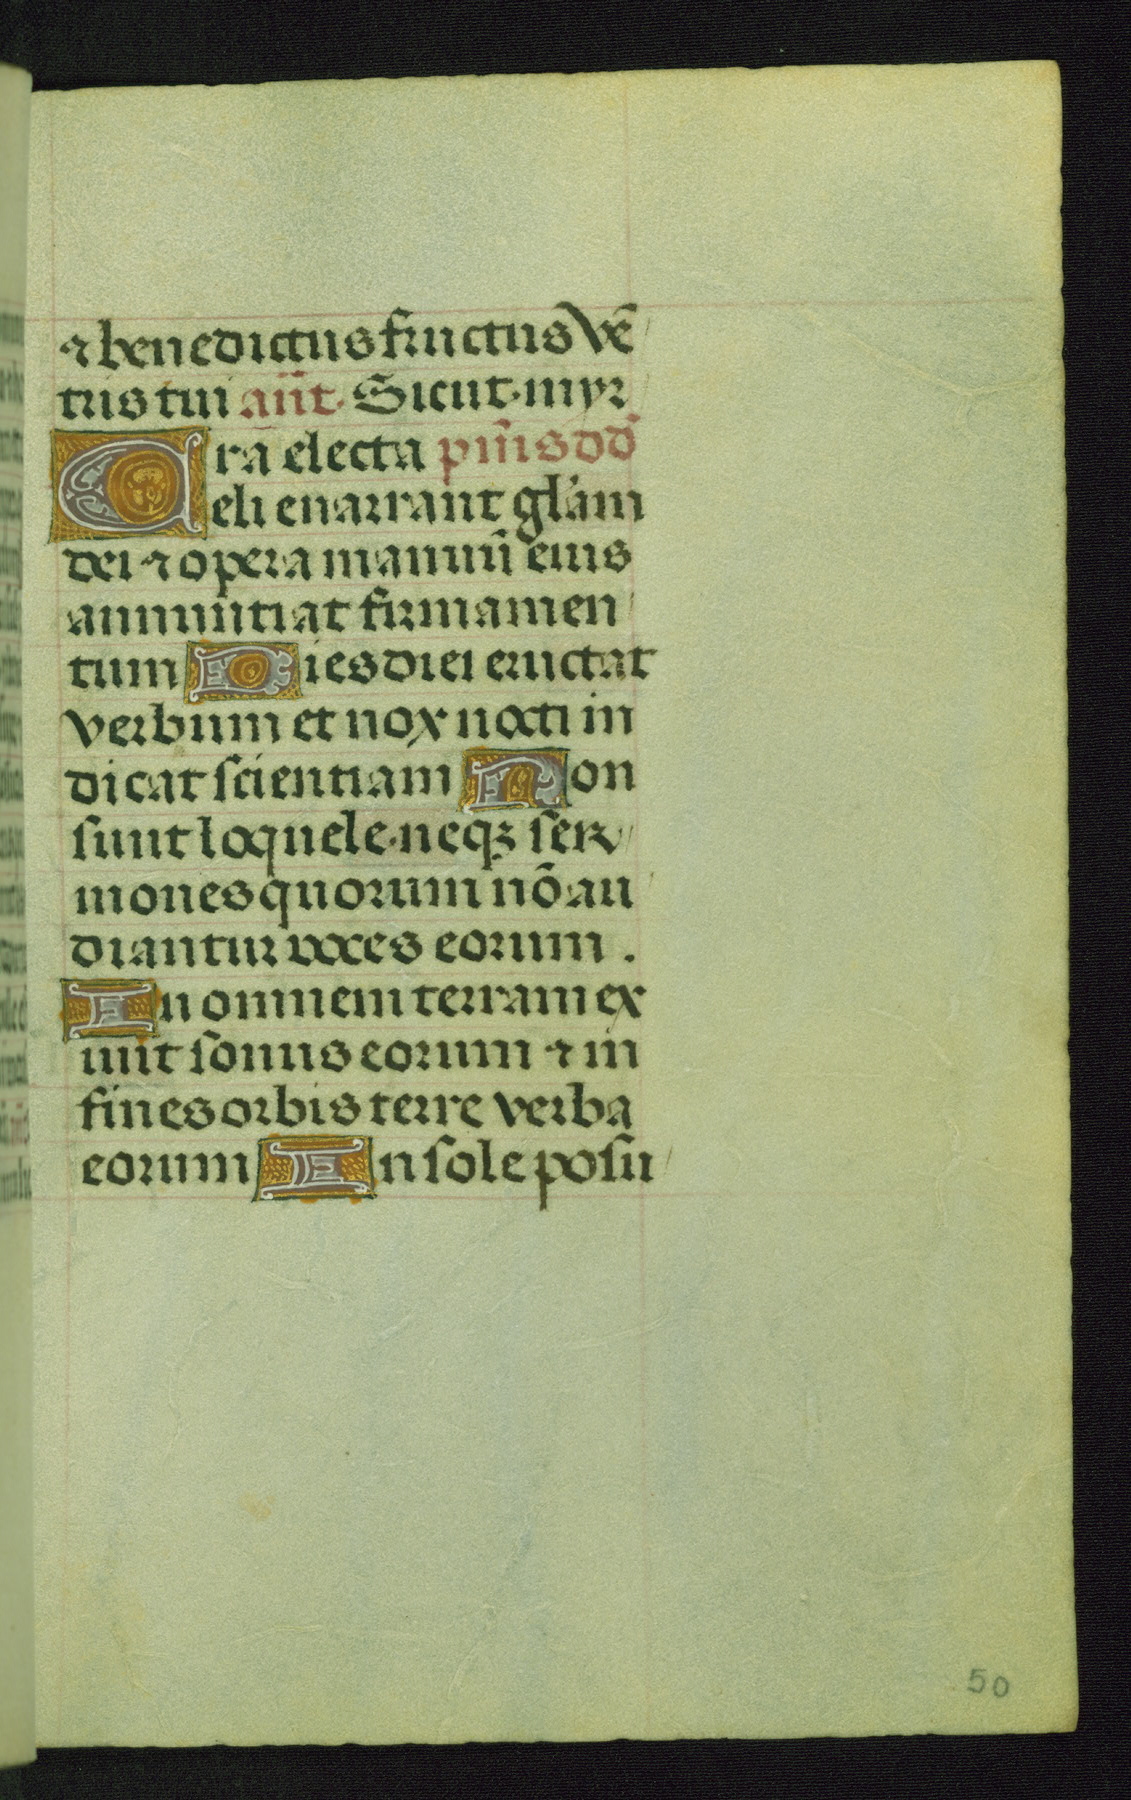 ⁊ benedictus fructus vē
tris tui an̄t. Sicut·myr
ra electa ps̄ mis dd̄
Celi enarrant gl'am
dei ⁊ opera manuū eius
annuntiat firmamen
tum Dies diei eructat
verbum et nox nocti in
dicat scientiam Non
sunt loquele·neqꝫ ser
mones quorum nō au
diantur voces eorum.
In omnem terram ex
iuit sonus eorum ⁊ in
fines orbis terre verba
eorum In sole posu
50